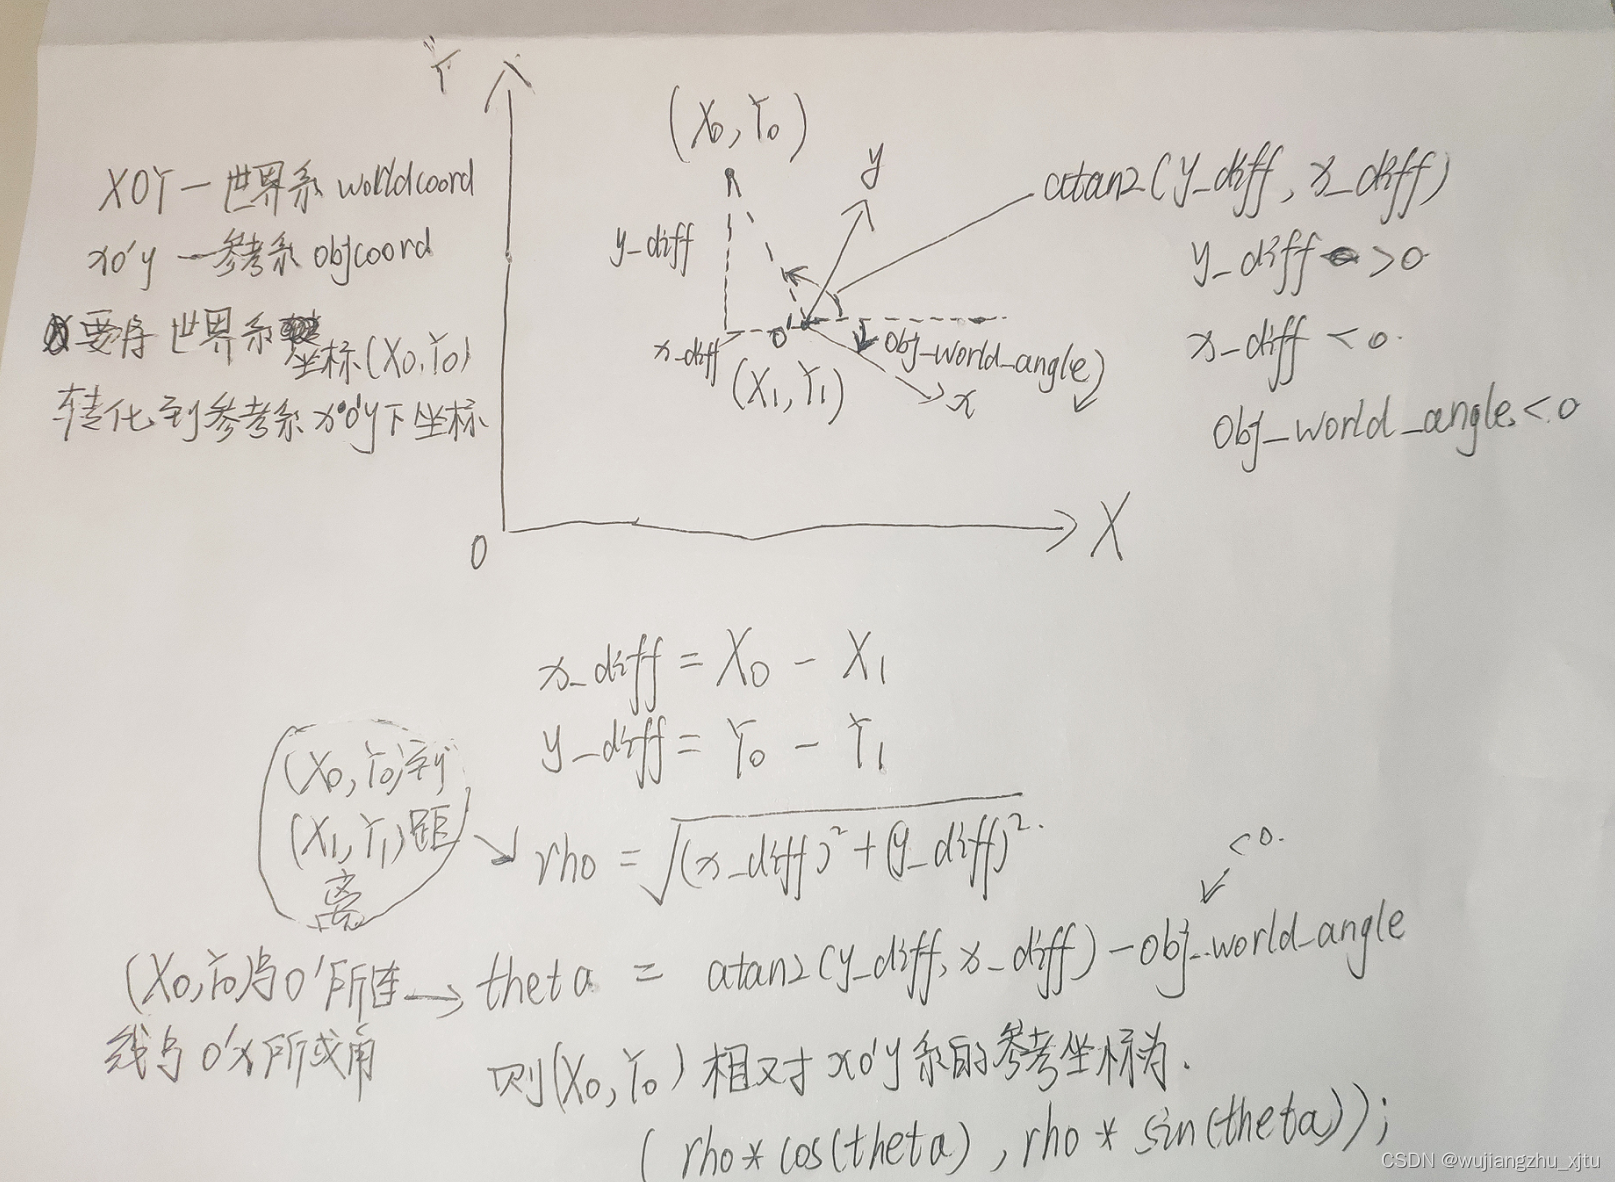 Y
(X0, Y0)
y
XOY — 世界系 worldcoord
xo'y — 参考系 objcoord
要将 世界系 坐标(X0, Y0)
转化到参考系 xo'y下坐标
y_diff
x_diff
o'
(X1, Y1)
obj_world_angle)
x
atan2(y_diff, x_diff)
y_diff >0
x_diff < 0.
obj_world_angle < 0
O
X
x_diff = X0 - X1
y_diff = Y0 - Y1
(X0, Y0)到
(X1, Y1)距
离
rho = √(x_diff)²+(y_diff)².
<0.
(X0, Y0)与O'所连
线与O'x所成角
theta = atan2(y_diff, x_diff) - obj_world_angle
则(X0, Y0) 相对 xo'y系的参考坐标为.
( rho*cos(theta) , rho * sin(theta));
CSDN @wujiangzhu_xjtu